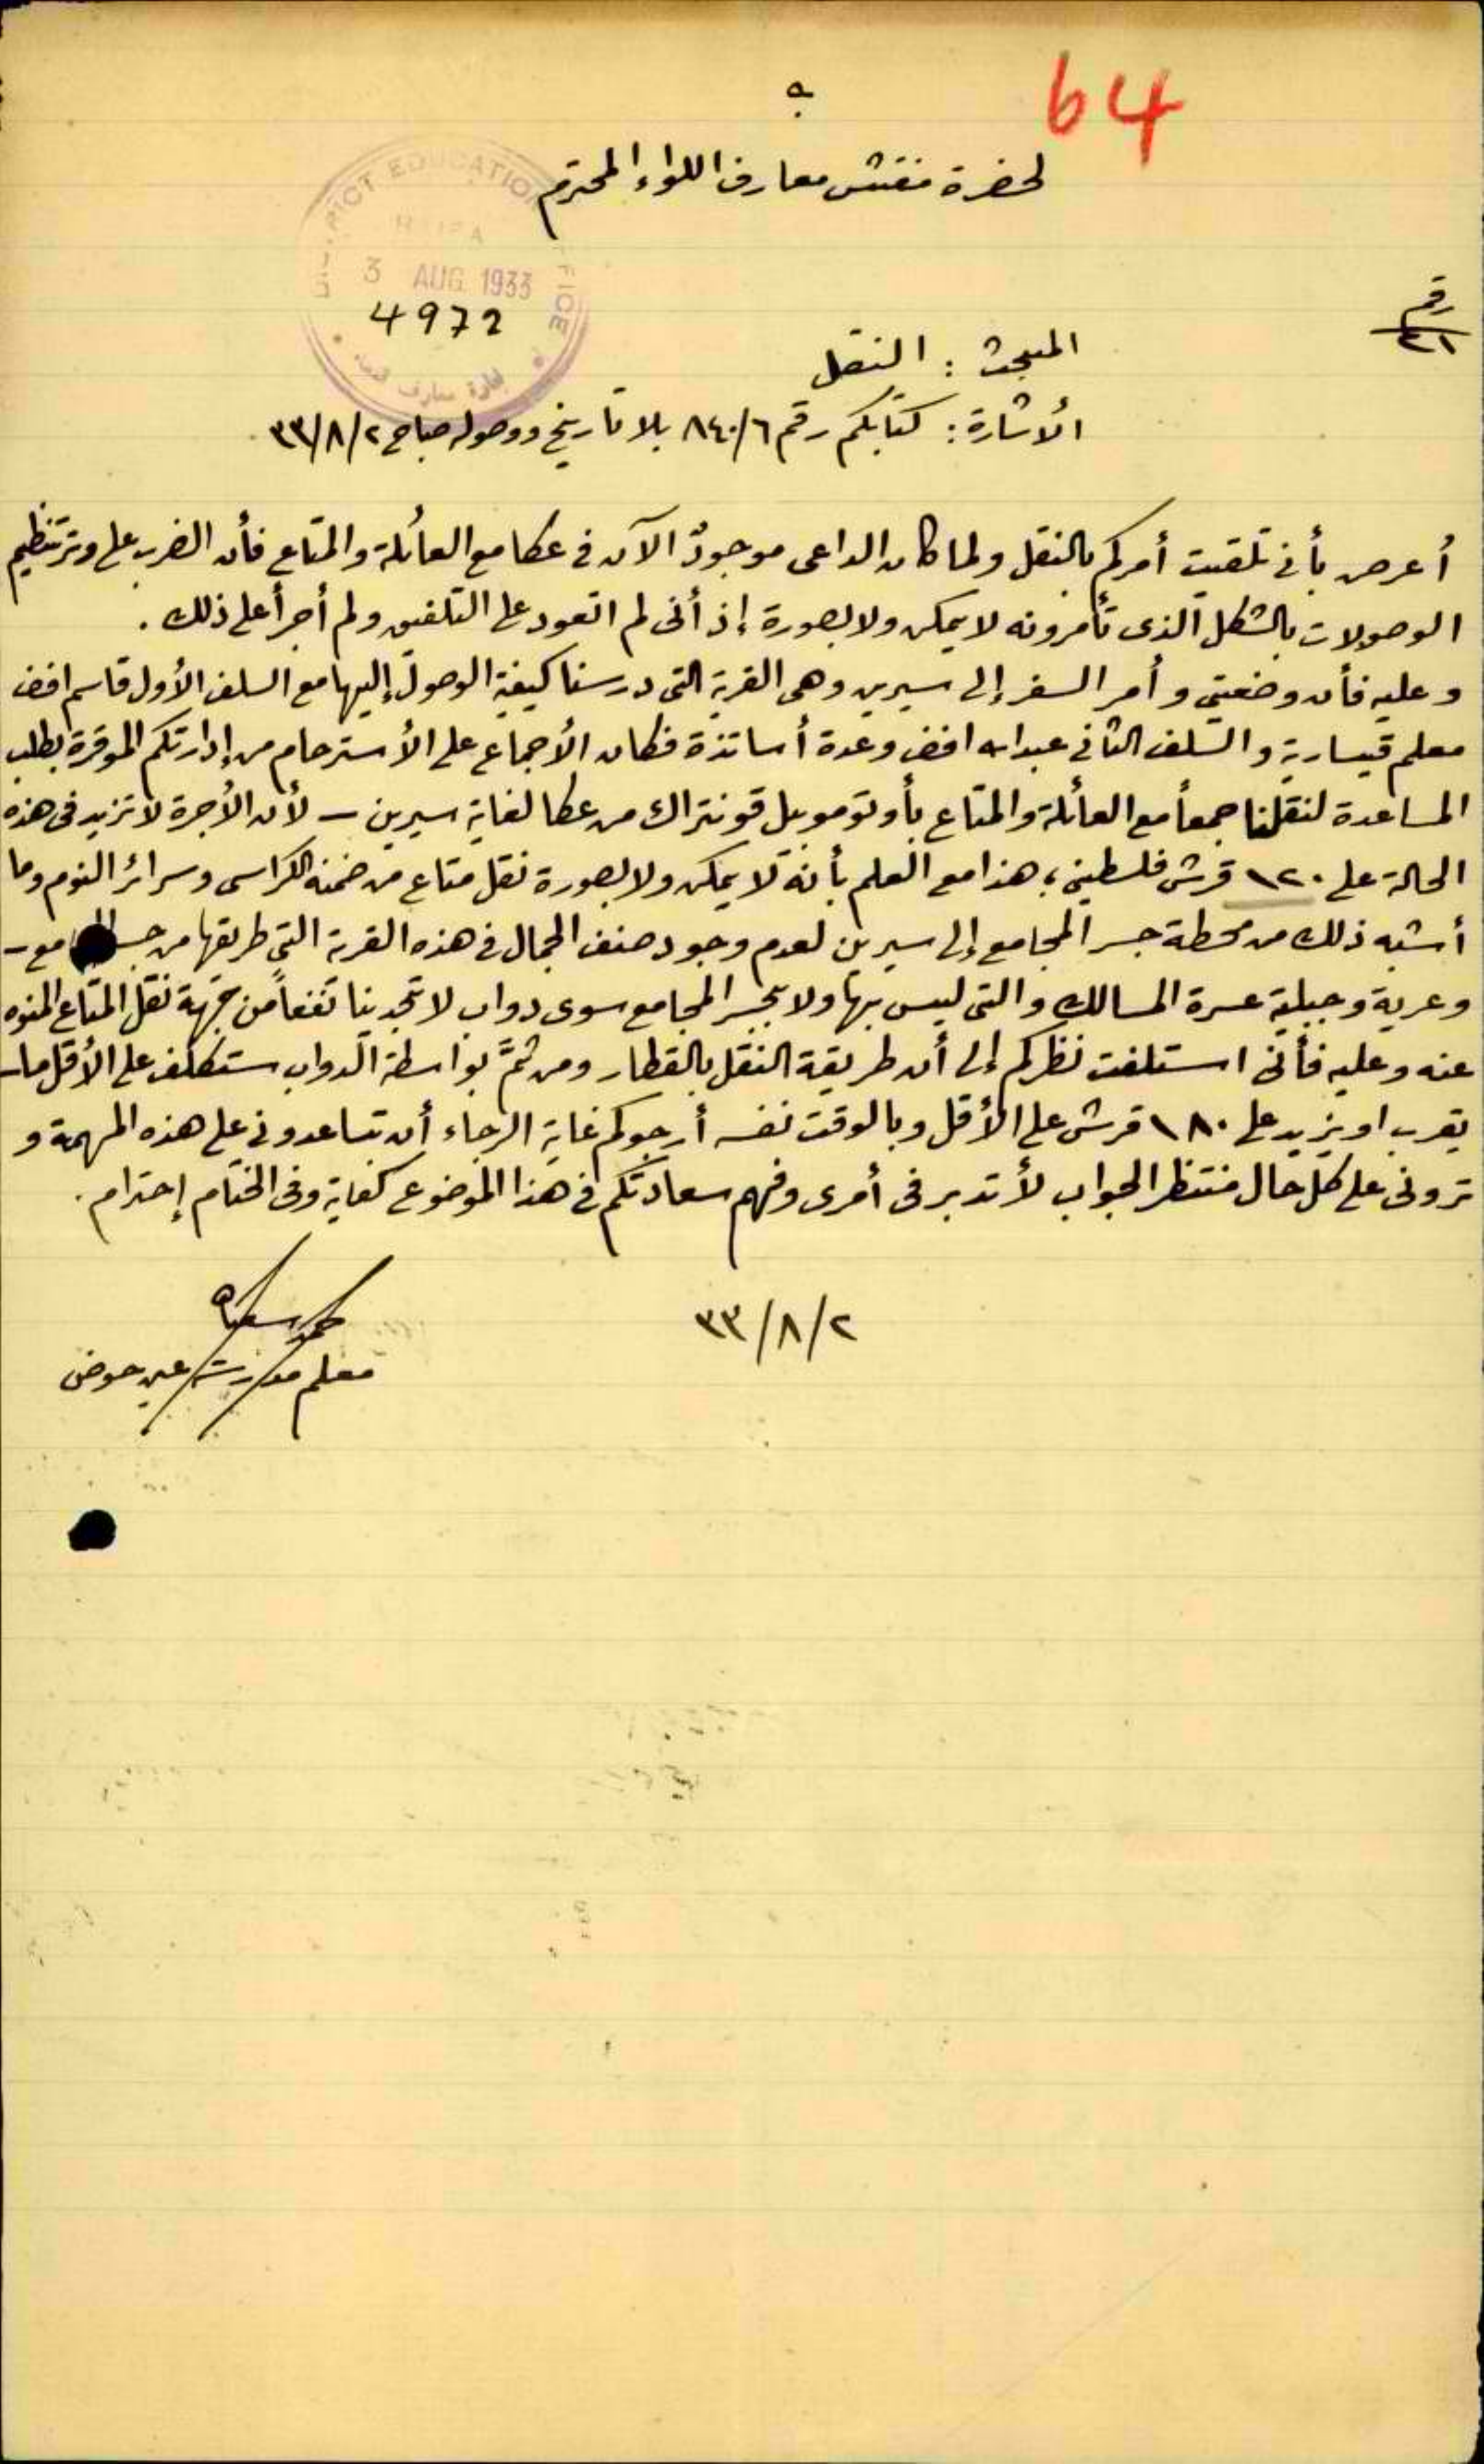 64
لحضرة مفتش معارف اللواء المحترم
DISTRICT EDUCATION OFFICE
HAIFA
3 AUG 1933
4972
رقم
٤١
المبحث : النقل
الأشارة : كتابكم رقم ٨٤٠/٦ بلا تاريخ ووصوله صباح ٣٣/٨/٢
أعرض بأني تلقيت أمركم بالنقل ولما كان الداعى موجودٌ الآن فى عكا مع العائلة والمتاع فأن الضرب على وتر تنظيم
الوصولات بالشكل الذى تأمرونه لا يمكن ولا بصورة إذ أنى لم اتعود على التلفيق ولم أجرأ على ذلك .
وعليه فأن وضعيتي وأمر السفر إلى سيرين وهى القرية التى درسنا كيفية الوصول إليها مع السلف الأول قاسم افندى
معلم قيسارية والسلف الثانى عبدالله افندى وعدة أساتذة فكان الأجماع على الأسترحام من إدارتكم الموقرة بطلب
المساعدة لنقلنا جمعاً مع العائلة والمتاع بأوتوموبيل قونتراك من عكا لغاية سيرين – لأن الأجرة لا تزيد فى هذه
الحالة على ١٢٠ قرش فلسطينى ، هذا مع العلم بأنه لا يمكن ولا بصورة نقل متاع من ضمنه الكراسى وسرائر النوم وما
أشبه ذلك من محطة جسر المجامع إلى سيرين لعدم وجود صنف الجمال فى هذه القرية التى طريقها من جسر المجامع –
وعرية وجبلية عسرة المسالك والتى ليس بها ولا بجسر المجامع سوى دواب لا تجدينا نفعاً من جهة نقل المتاع المنوه
عنه وعليه فأنى استلفت نظركم إلى أن طريقة النقل بالقطار ومن ثمَّ بواسطة الدواب ستكلف على الأقل ما
يقرب او يزيد على ١٨٠ قرش على الأقل وبالوقت نفسه أرجوكم غاية الرجاء أن تساعدونى على هذه المهمة و
ترونى على كل حال منتظر الجواب لأتدبر فى أمرى وفهم سعادتكم فى هذا الموضوع كفاية وفى الختام إحترام .
٣٣/٨/٢
معلم مدرسة عين حوض